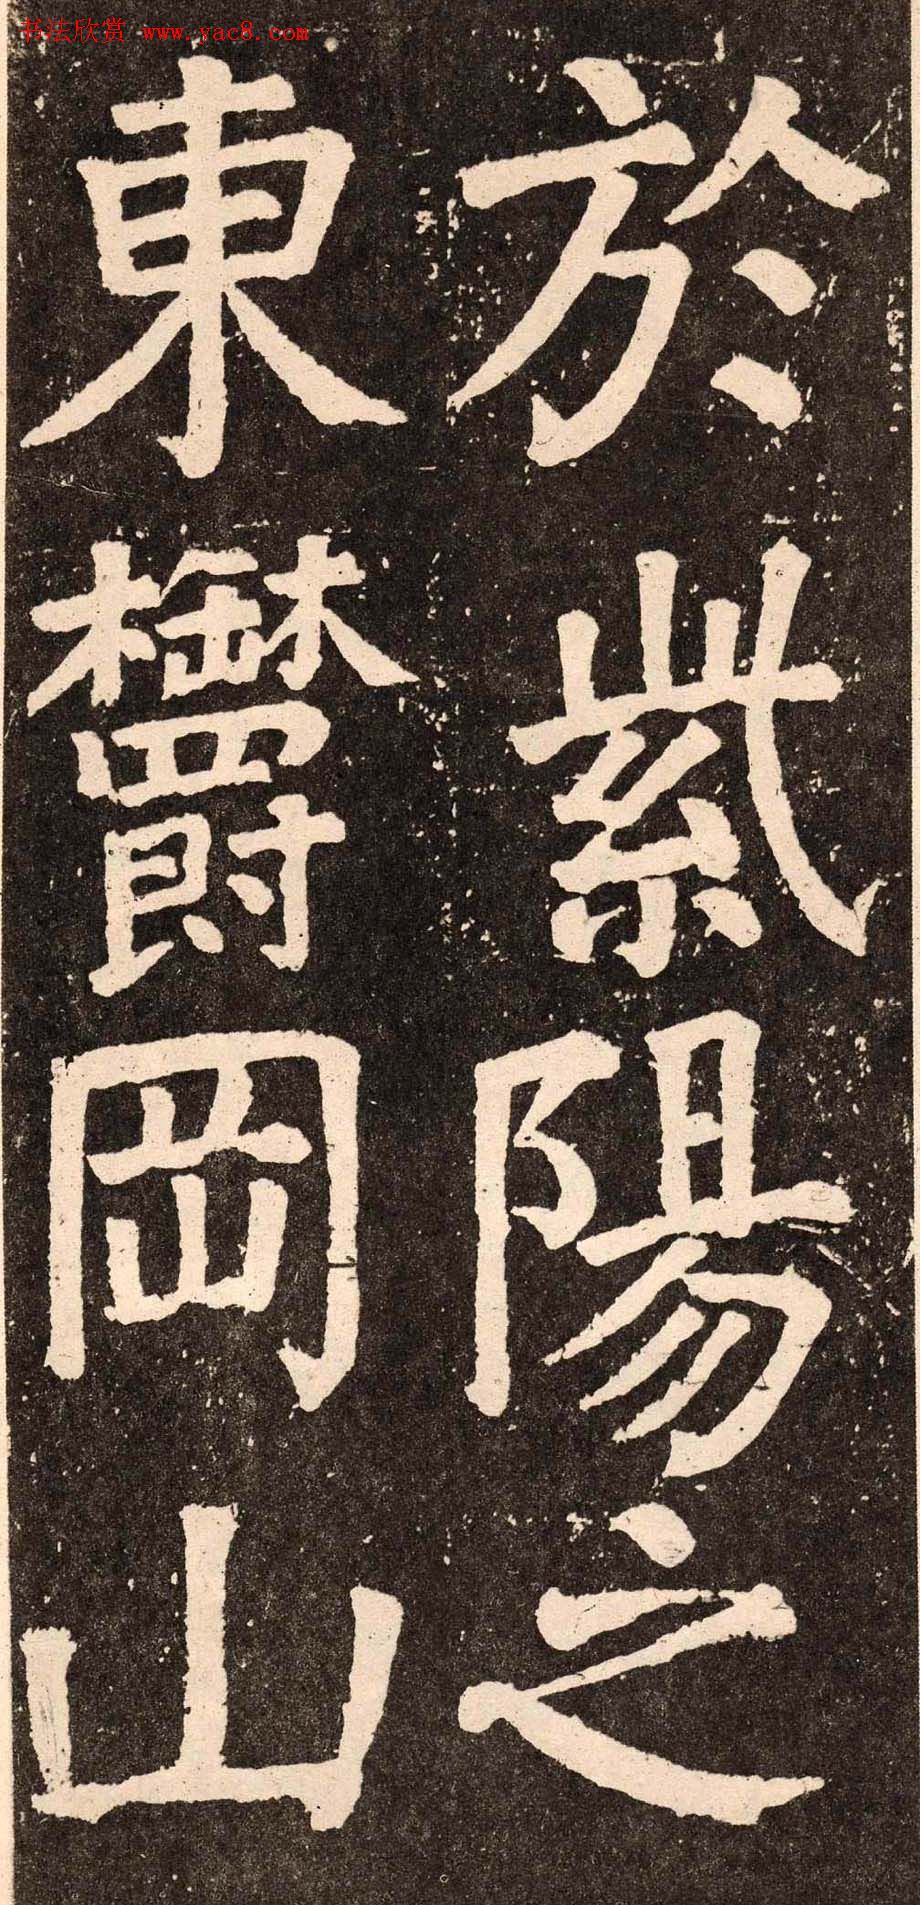 书法欣赏 www.yac8.com
於紫陽之
東欝岡山